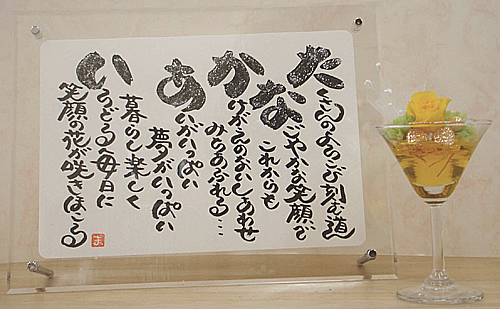 たくさんのよろこび刻む道
なごやかな笑顔で
これからも
かけがえのないしあわせ
みちあふれる…
あいがいっぱい
夢がいっぱい
暮らし楽しく
いろどる毎日に
笑顔の花が咲きほこる